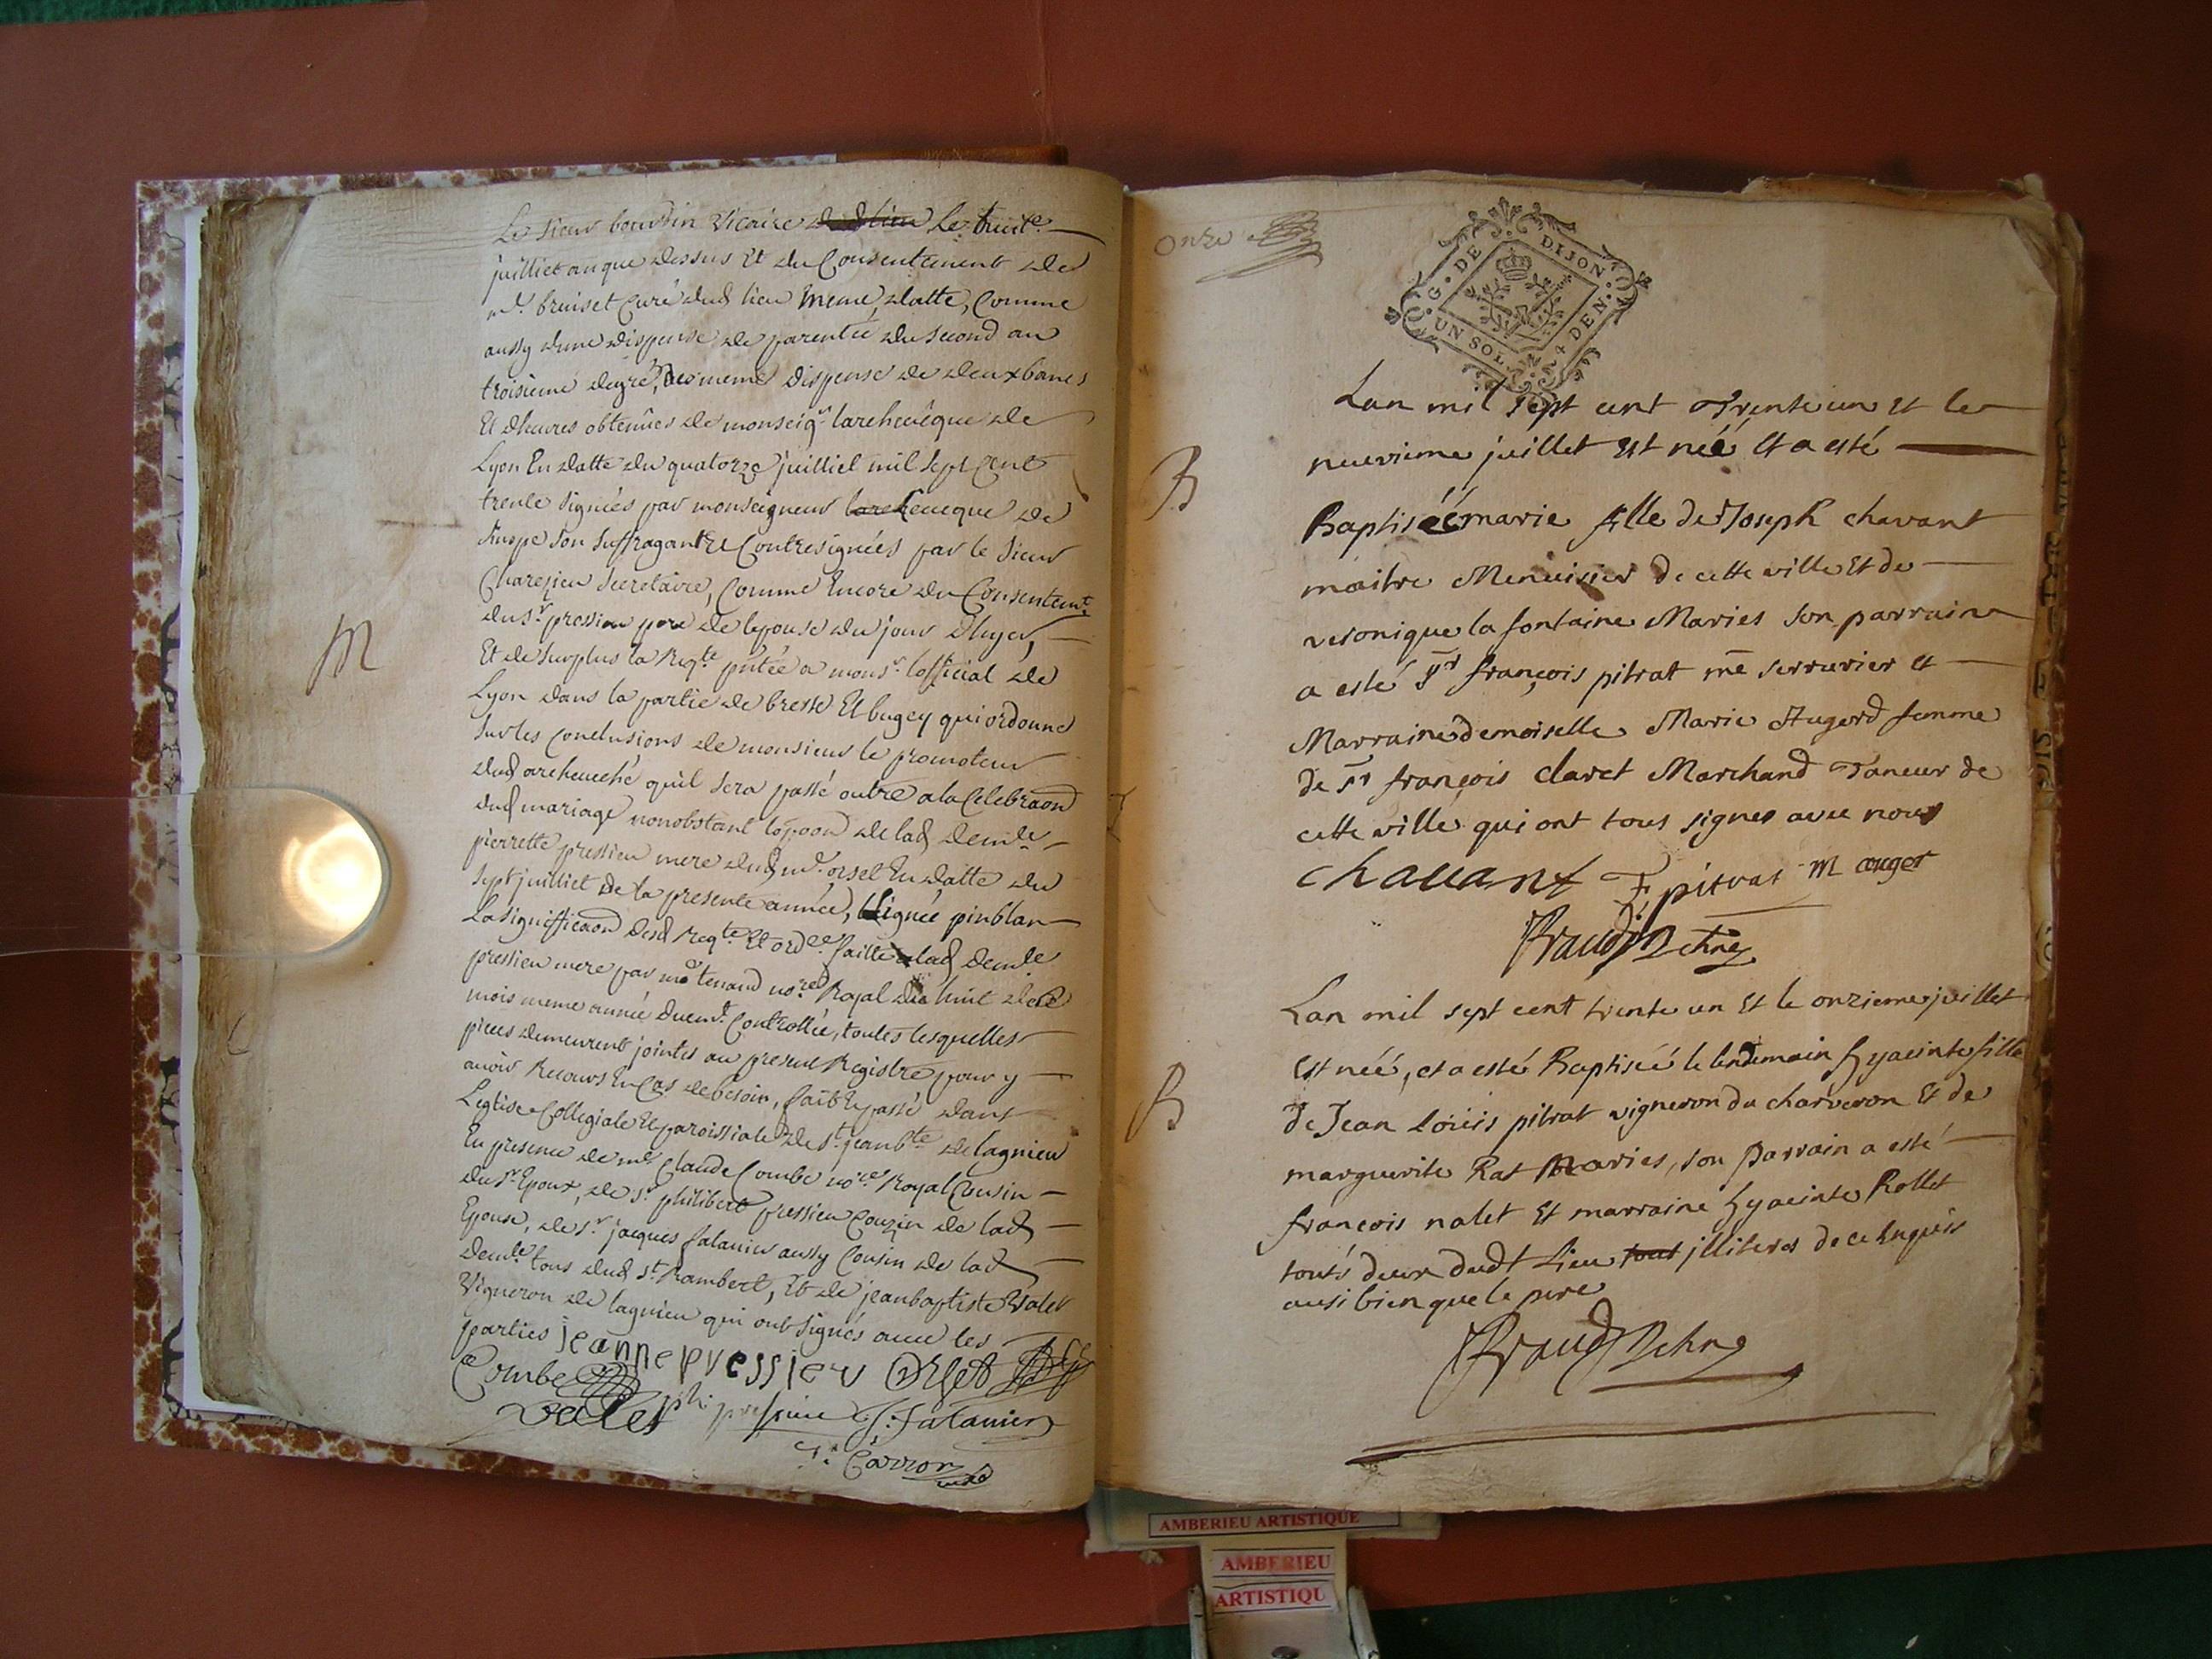 Le sieur bourdin vicaire dud lieu le huite
juilliet an que dessus Et du Consentement de
mr. bruiset Curé dud lieu meme datte, Comme
aussy dune dispense de parentée du second au
troisieme degré, meme dispense de deux bancs
Et dheures obtenües de monseigr larcheuêque de
Lyon En datte du quatorze juilliet mil sept Cent
trente signées par monseigneur leueque de
son suffragant Et Contresignées par le sieur
secretaire, Comme Encore du Consentemt
du sr pression pere de lepouse du jour dhyer,
Et de surplus la Reqte pntée a monsr lofficial de
Lyon dans la partie de bresse Et bugey qui ordonne
sur les Conclusions de monsieur le promoteur
dud archeueché quil sera passé outre a la Celebraon
dud mariage nonobstant lopoon de lad demlle
pierrette pressieu mere dud mr. orsel En datte du
sept juilliet de la presente année, signée pinblan
La signifficaon desd Reqte Et ordce faitte a lad demlle
pressieu mere par me tenand nore Royal du huit de ce
mois meme année duemt Controllée, toutes lesquelles
pieces demeurent jointes au present Registre pour y
auoir Recours En Cas de besoin, fait Et passé dans
Leglise Collegiale Et paroissiale de st jean bte de lagnieu
En presence de me Claude Combe nore Royal Cousin
du sr Epoux, de sr philibert pressieu Couzin de lad
Epouse, de sr jacques falauier aussy Cousin de lad
demlle tous dud st Rambert, Et de jean baptiste valet
Vigneron de lagnieu qui ont signés auec les
parties jeanne pressieu Orset
Combe
valet phi pressieu J. falauier
Carron
M
onze
G. DE DIJON
UN SOL 4 DEN.
Lan mil sept cent Trente un et le
neuvieme juillet est née et a esté
B
Baptisée marie fille de Joseph chavant
maitre Menuisier de cette ville et de
veronique la fontaine Maries son parrain
a esté sr françois pitrat me serrurier et
Marraine demoiselle Marie Augerd femme
de sr françois claret Marchand Taneur de
cette ville qui ont tous signes avec nous
chauant F pitrat M auger
Lan mil sept cent trente un et le onzieme juillet
est née, et a esté Baptisée le lendemain hyacinte fille
B
de Jean Loüis pitrat vigneron du charveron et de
marguerite Rat Maries, son parrain a esté
françois nalet et marraine hyacinte Rollet
touts deux dudt Lieu tout jlliteres de ce Enquis
ausi bien que le pere
AMBERIEU ARTISTIQUE
AMBERIEU
ARTISTIQU